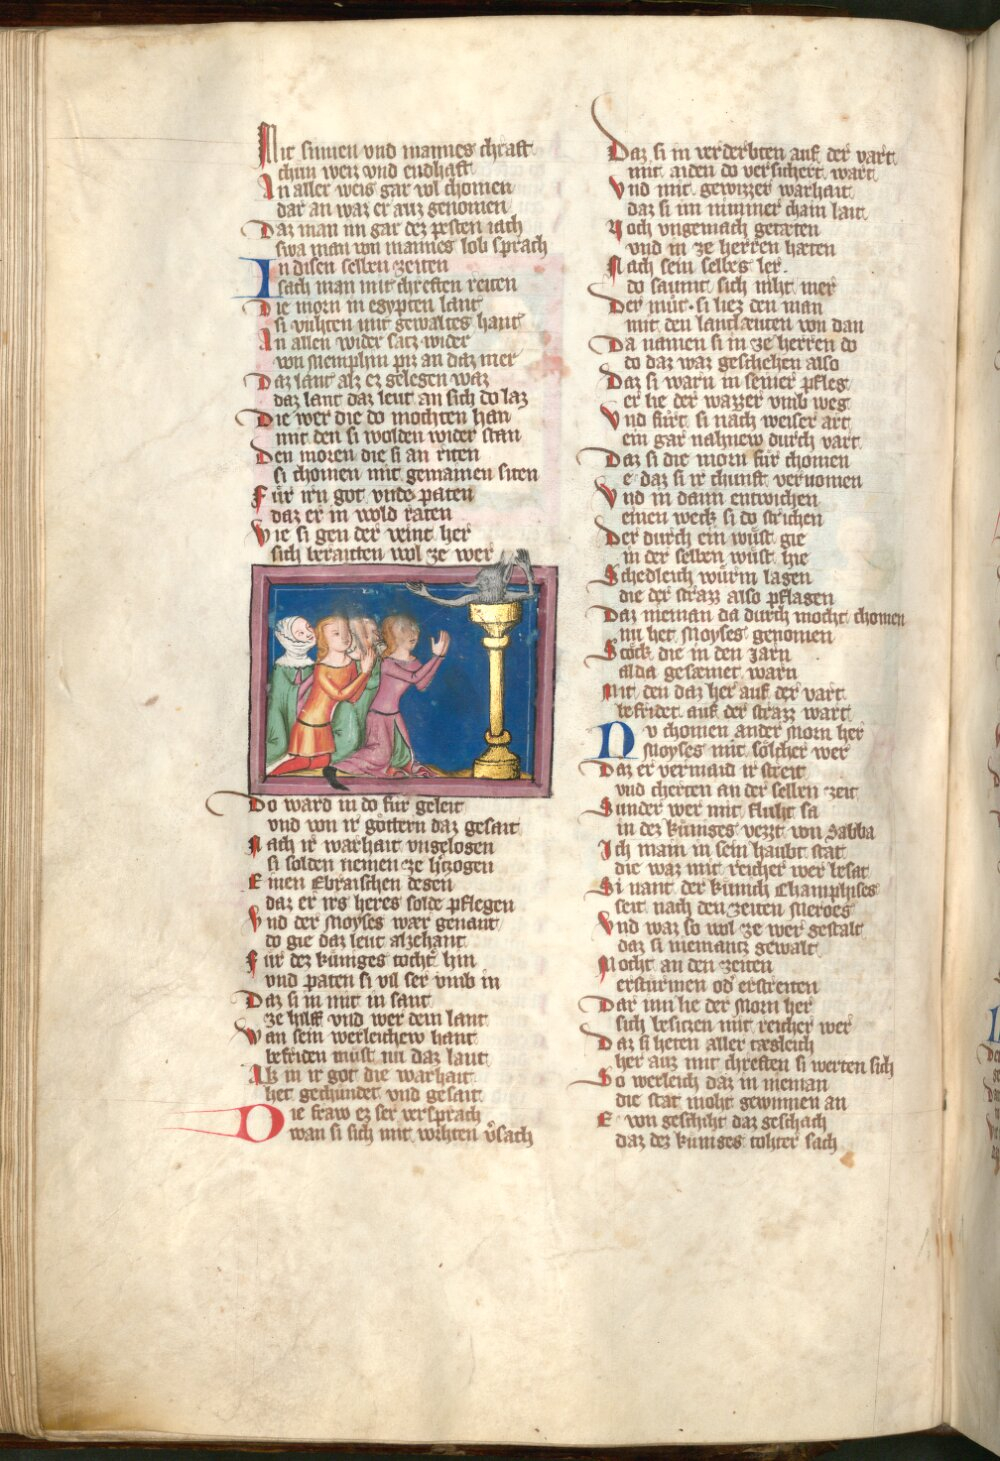 Mit sinnen vnd mannes chraft
chun weis vnd endhaft
In aller weis gar vol chomen
dar an waz er auz genomen
Daz man im gar dez pesten iach
swa man von mannes lob sprach
In disen selben zeiten
sach man mit chreften reiten
Die morn in egypten lant
si vuhten mit gewaltes hant
In allen wider satz wider
von memphim piz an daz mer
Daz lant alz ez gelegen waz
daz lant daz leut an sich do laz
Die wer die do mochten han
mit den si wolden wider stan
Den moren die si an riten
si chomen mit gemainen siten
Für irn got vnde paten
daz er in wold raten
Wie si gen der veint her
sich beraitten wol ze wer
Do ward in do für geleit
vnd von ir göttern daz gesait
Nach ir warhait vngelogen
si solden nemen ze hertzogen
Einen Ebraischen degen
daz er irs heres solde pflegen
Vnd der Moyses wær genant
do gie daz leut alzehant
Für dez küniges tocht hin
vnd paten si vil ser vmb in
Daz si in mit in sant
ze hilff vnd wer dem lant
Wan sein werleichew hant
befriden müst im daz lant
Alz in ir got die warhait
het gechündet vnd gesait
Die fraw ez ser versprach
wan si sich mit vorhten v̊sach
Daz si in verderbten auf der vart
mit aiden do versichert wart
Vnd mit gewizzer warhait
daz si im nimmer chain lait
Noch vngemach getæten
vnd in ze herren hæten
Nach sein selbes ler.
do saumt sich niht mer
Der mut. si liez den man
mit den lantlæuten von dan
Da namen si in ze herren do
do daz waz geschehen also
Daz si warn in seiner pfleg
er lie der wazzer vmb weg
Vnd fürt si nach weiser art
ein gar nahnew durch vart
Daz si die morn für chomen
e daz si ir chunft vernomen
Vnd in dann entwichen
einen weck si do strichen
Der durch ein wüst gie
in der selben wüst hie
Schedleich würm lagen
die der strazz also pflagen
Daz nieman da durch mocht chomen
nu het Moyses genomen
Stöck die in den jarn
alda gesæmet warn
Mit den daz her auf der vart
befridet auf der strazz wart
Nv chomen ander Morn her
Moyses mit sölcher wer
Daz er vermaid ir streit
vnd cherten an der selben zeit
Sunder wer mit fluht sa
in dez küniges vezzt von Sabba
Ich main in sein haubt stat
die waz mit reicher wer besat
Si nant der künich Champhises
seit nach den zeiten Meroes
Vnd waz so wol ze wer gestalt
daz si niemantz gewalt
Mocht an den zeiten
ersturmen od erstreiten
Dar inn lie der Morn her
sich besitzen mit reicher wer
Daz si heten aller tægleich
her auz mit chreften si werten sich
So werleich daz in nieman
die stat moht gewinnen an
E von geschiht daz geschach
daz dez küniges tohter sach